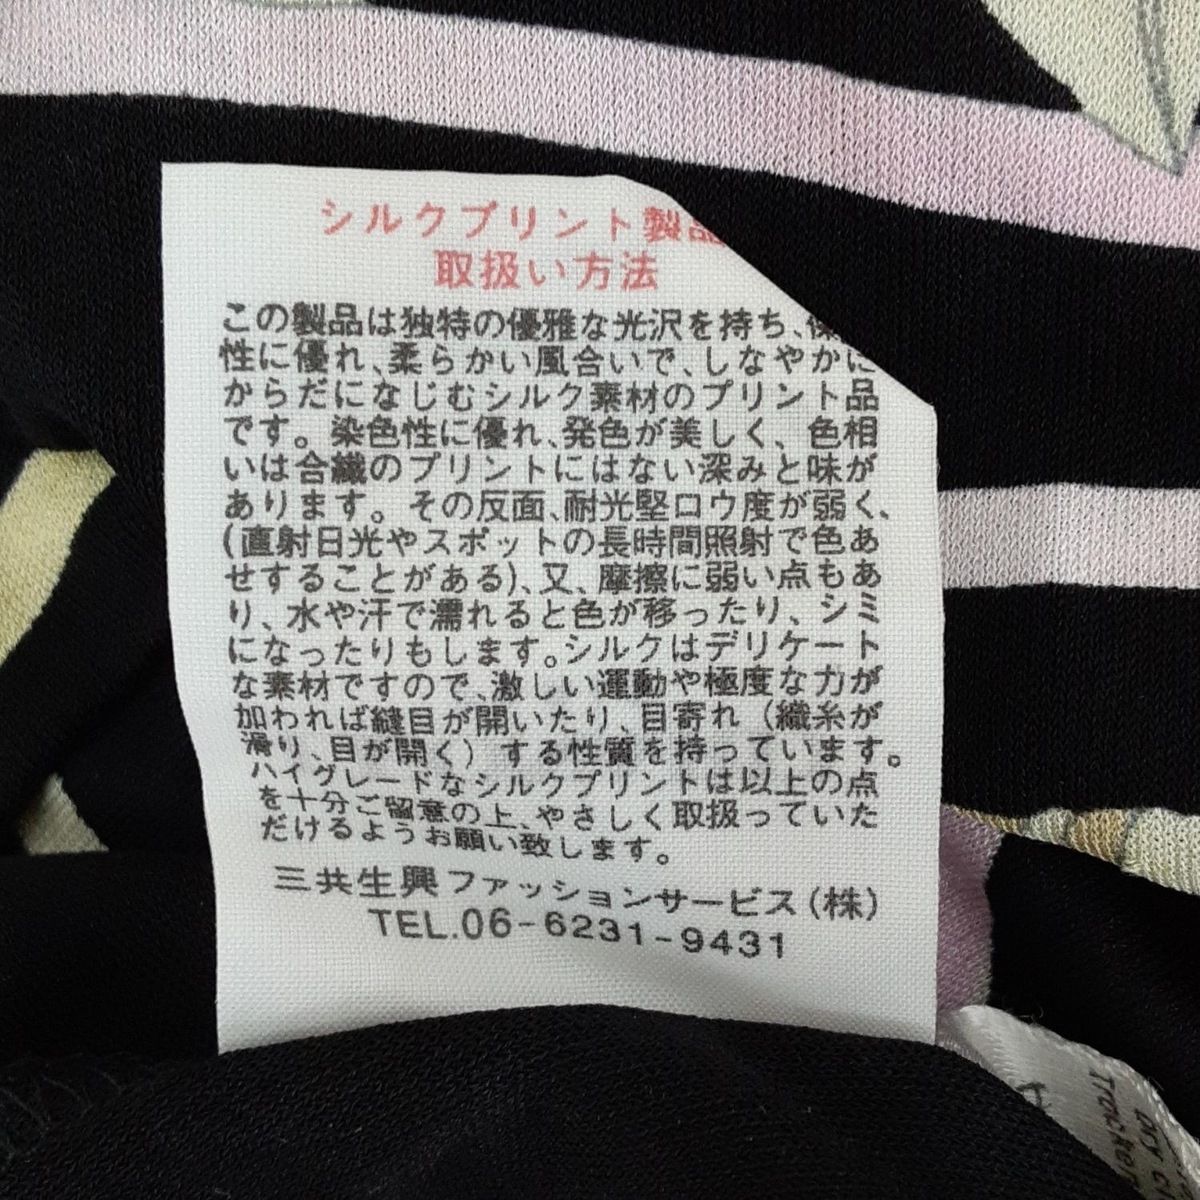 シルクプリント製品
取扱い方法
この製品は独特の優雅な光沢を持ち、保
性に優れ、柔らかい風合いで、しなやかに
からだになじむシルク素材のプリント品
です。染色性に優れ、発色が美しく、色相
いは合繊のプリントにはない深みと味が
あります。その反面、耐光堅ロウ度が弱く、
(直射日光やスポットの長時間照射で色あ
せすることがある)、又、摩擦に弱い点もあ
り、水や汗で濡れると色が移ったり、シミ
になったりもします。シルクはデリケート
な素材ですので、激しい運動や極度な力が
加われば縫目が開いたり、目寄れ(織糸が
滑り、目が開く)する性質を持っています。
ハイグレードなシルクプリントは以上の点
を十分ご留意の上、やさしく取扱っていた
だけるようお願い致します。
三共生興ファッションサービス(株)
TEL.06-6231-9431